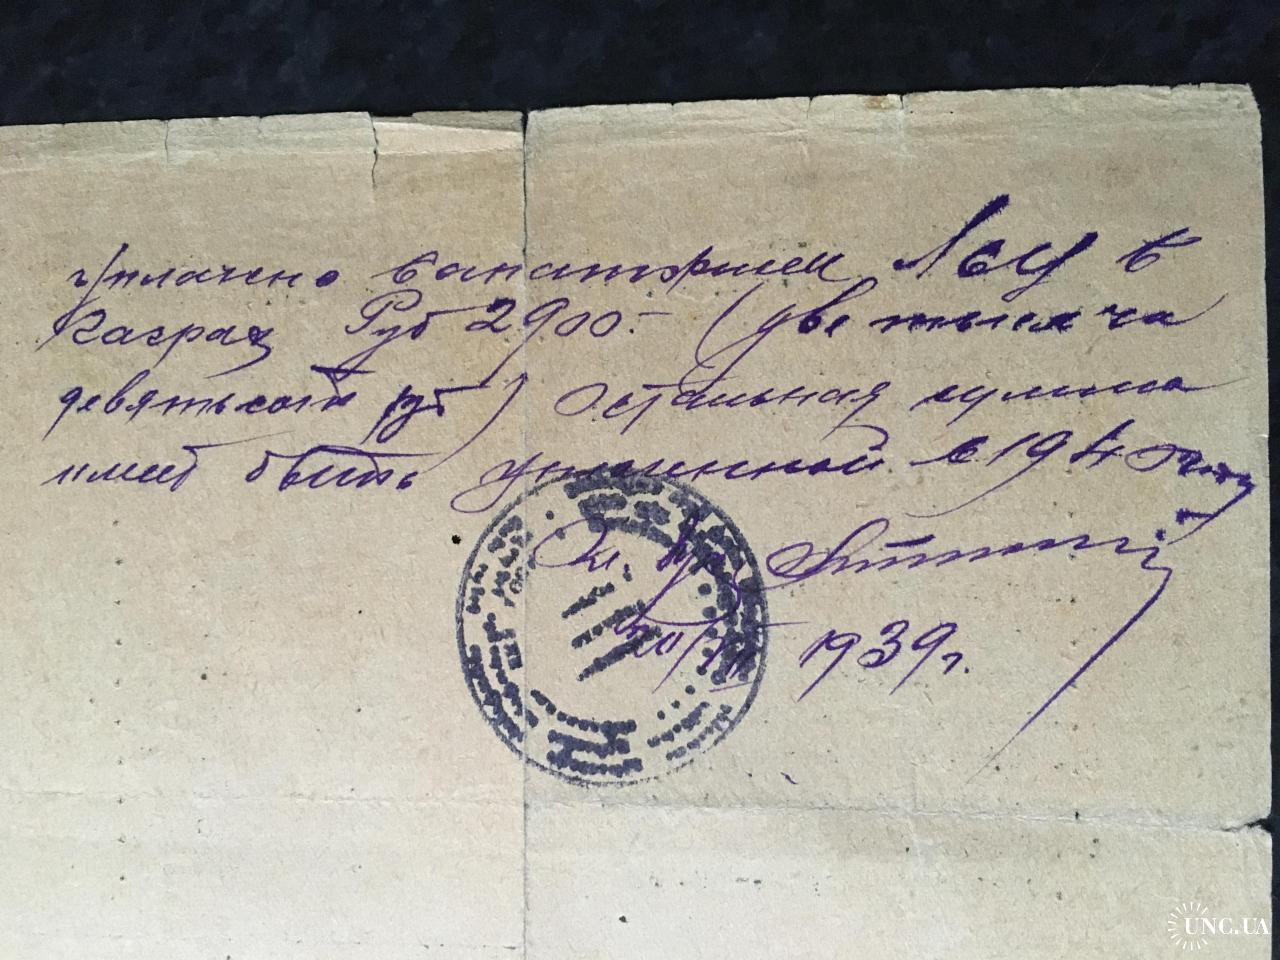 уплачено санаторием ЛСЦ в
Гаграх Руб 2900.- (две тысяча
девятьсот руб) остальная сумма
имеет быть уплаченной в 1940 году
Гл. бух.
1939 г.
UNC.UA